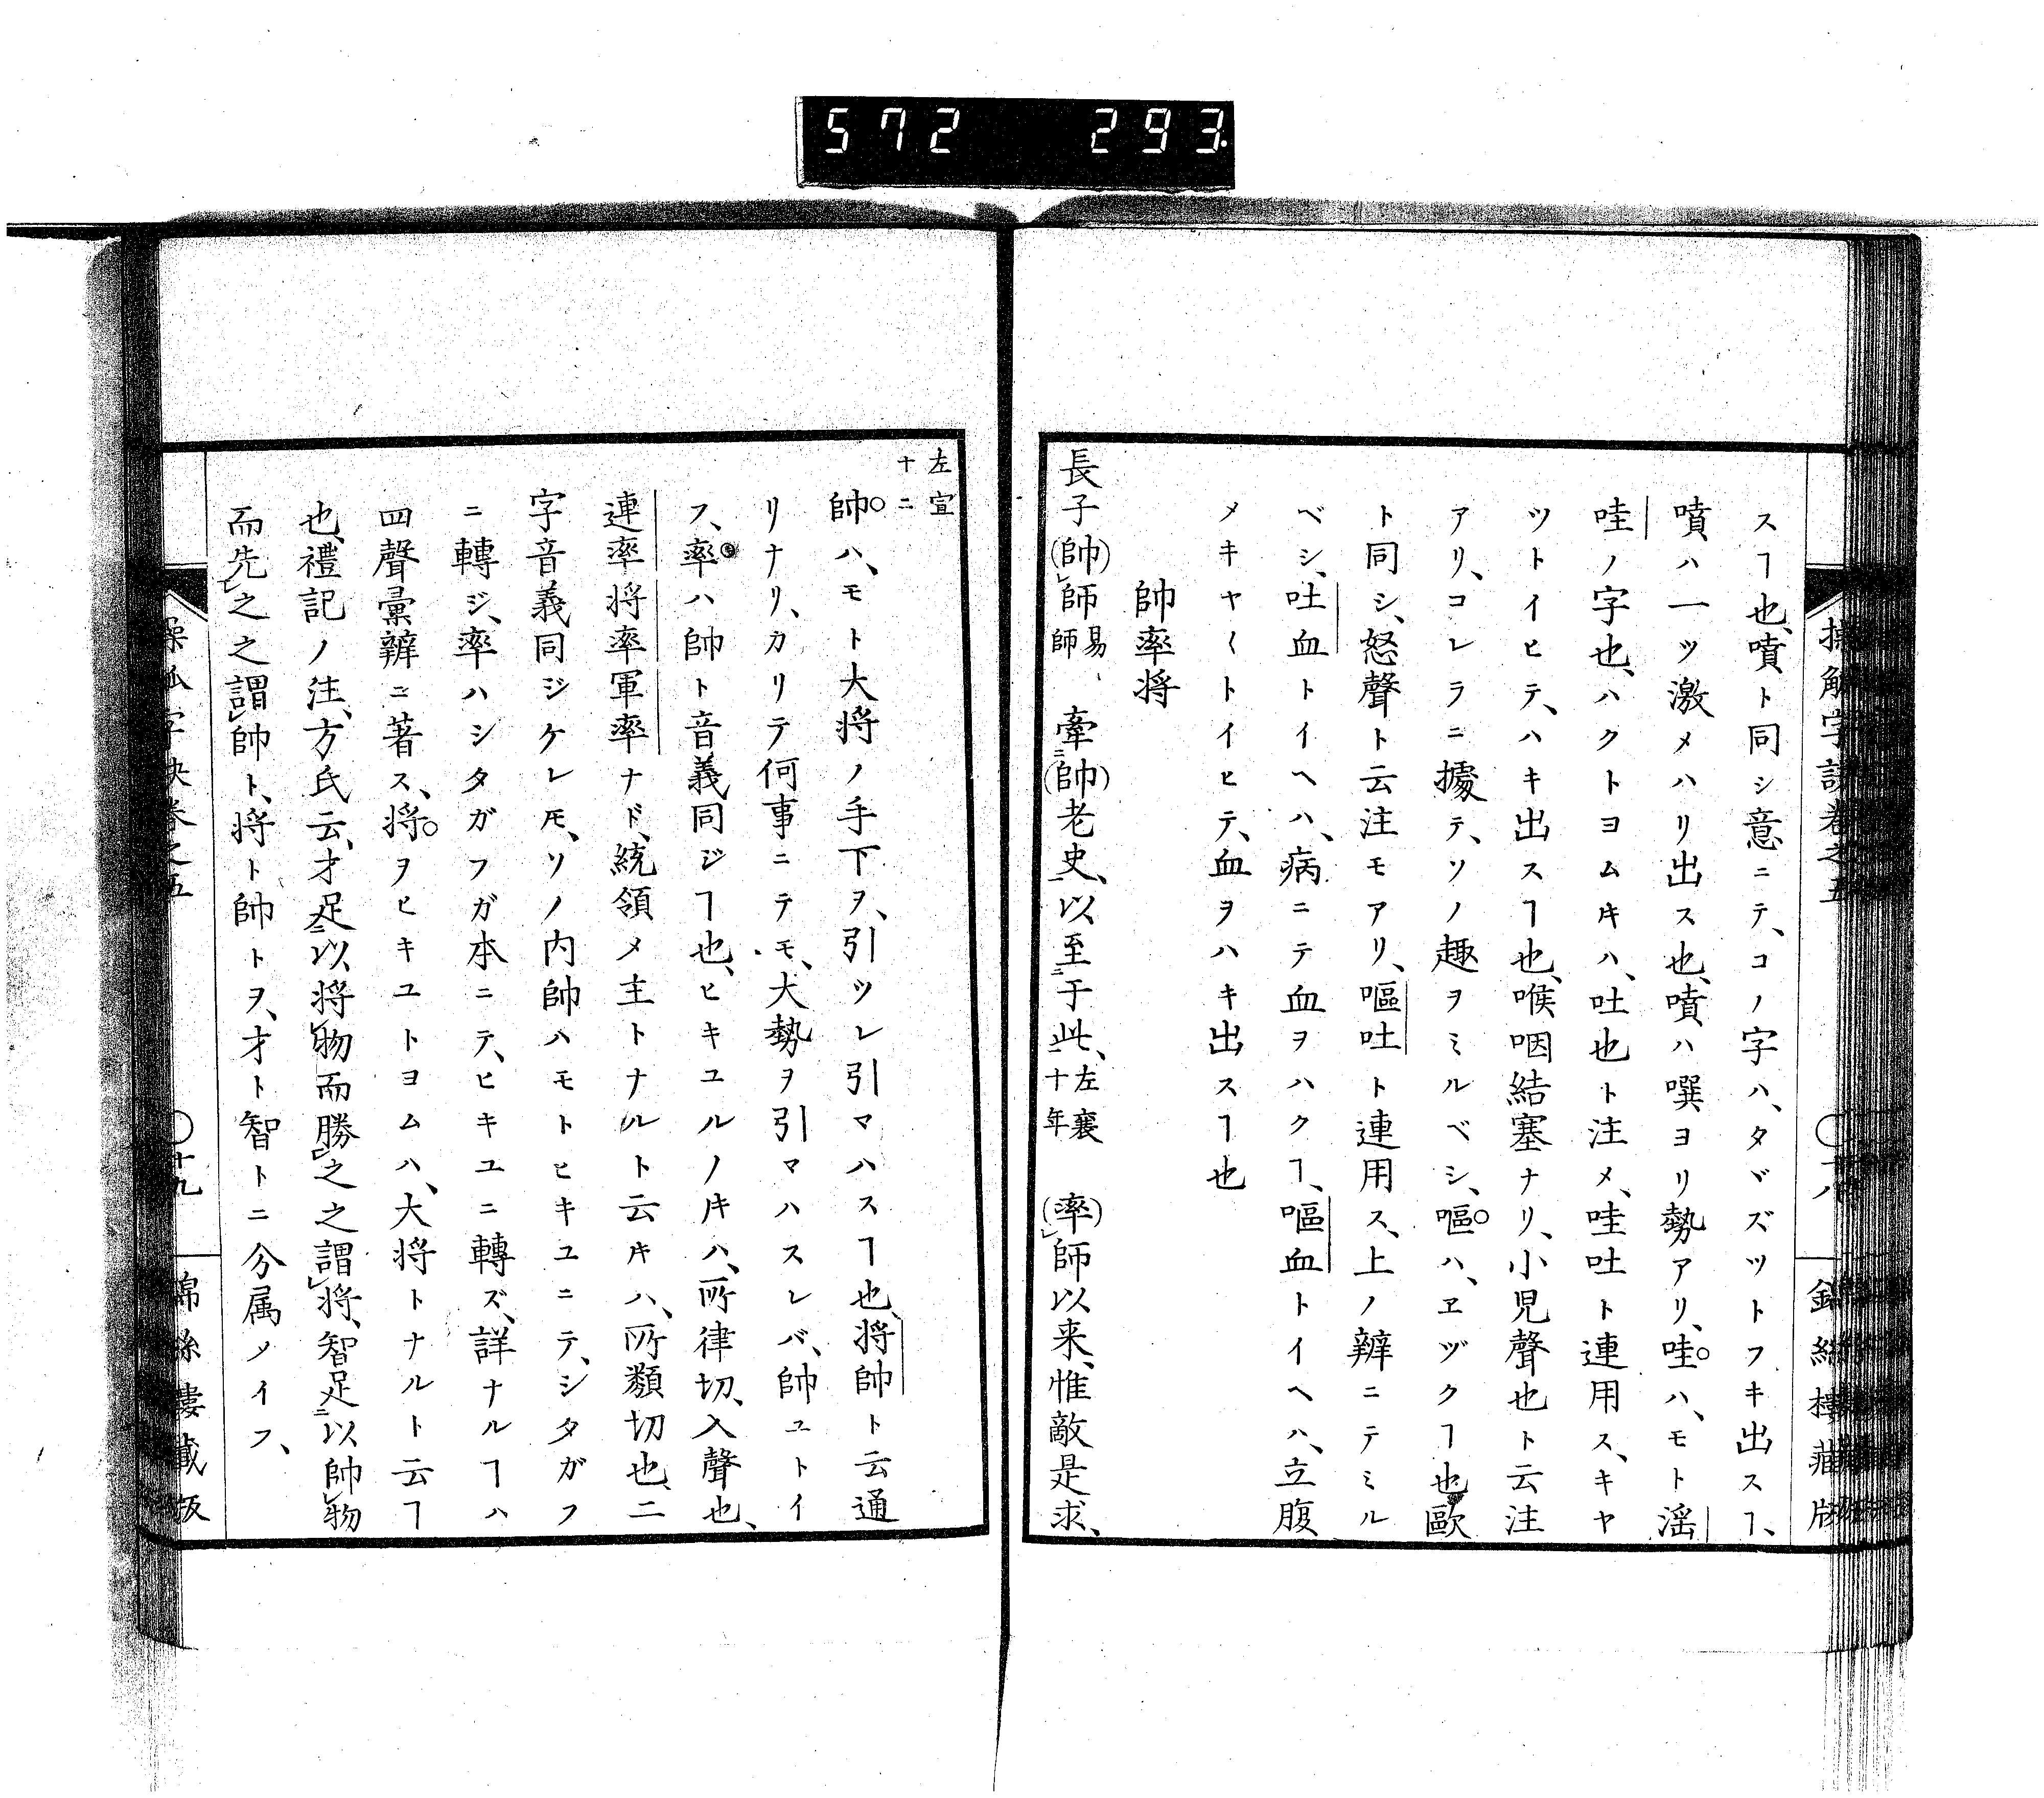 572 293
操觚字訣卷之五
〇十八
錦絲樓藏版
スヿ也、噴ト同シ意ニテ、コノ字ハ、タヾズツトフキ出スヿ、
噴ハ一ツ激メハリ出ス也、噴ハ噀ヨリ勢アリ、哇ハ、モト滛
哇ノ字也、ハクトヨムキハ、吐也ト注メ、哇吐ト連用ス、キヤ
ツトイヒテ、ハキ出スヿ也、喉咽結塞ナリ、小児聲也ト云注
アリ、コレラニ據テ、ソノ趣ヲミルベシ、嘔ハ、ヱヅクヿ也、歐
ト同シ、怒聲ト云注モアリ、嘔吐ト連用ス、上ノ辨ニテミル
ベシ、吐血トイヘハ、病ニテ血ヲハクヿ、嘔血トイヘハ、立腹
メキヤ〱トイヒテ、血ヲハキ出スヿ也
帥率将
長子(帥)レ師易師、牽ニ(帥)老史、以至于此、左襄十年 (率)レ師以来、惟敵是求、
左宣十二
帥ハ、モト大将ノ手下ヲ、引ツレ引マハスヿ也、将帥ト云通
リナリ、カリテ何事ニテモ、大勢ヲ引マハスレバ、帥ユトイ
フ、率ハ帥ト音義同ジヿ也、ヒキユルノ𪜈ハ、所律切、入聲也、
連率将率軍率ナド、統領メ主トナルト云𪜈ハ、所類切也、二
字音義同ジケレ𪜈、ソノ内帥ハモトヒキユニテ、シタガフ
ニ轉ジ、率ハシタガフガ本ニテ、ヒキユニ轉ズ、詳ナルヿハ
四聲彙辨ニ著ス、将ヲヒキユトヨムハ、大将トナルト云ヿ
也、禮記ノ注、方氏云、才足ニ以将レ物而勝レ之之謂レ将、智足ニ以帥レ物
而先レ之之謂レ帥ト、将ト帥トヲ、才ト智トニ分属メイフ、
操觚字訣卷之五
〇十九
錦絲樓藏板